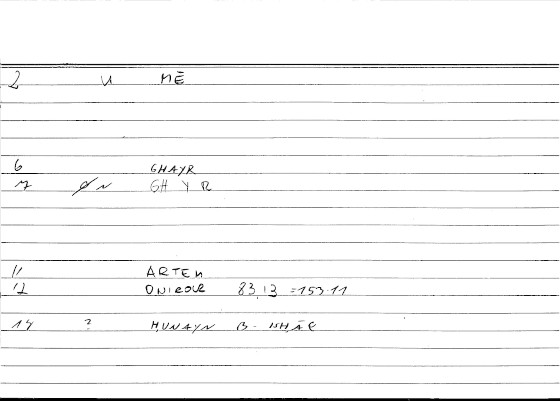 2 U MĒ
6 GHAYR
7 N GH Y R
11 ARTEM
12 ONIROCR 83,13 =153.11
14 ? HUNAYN B. ISHĀQ